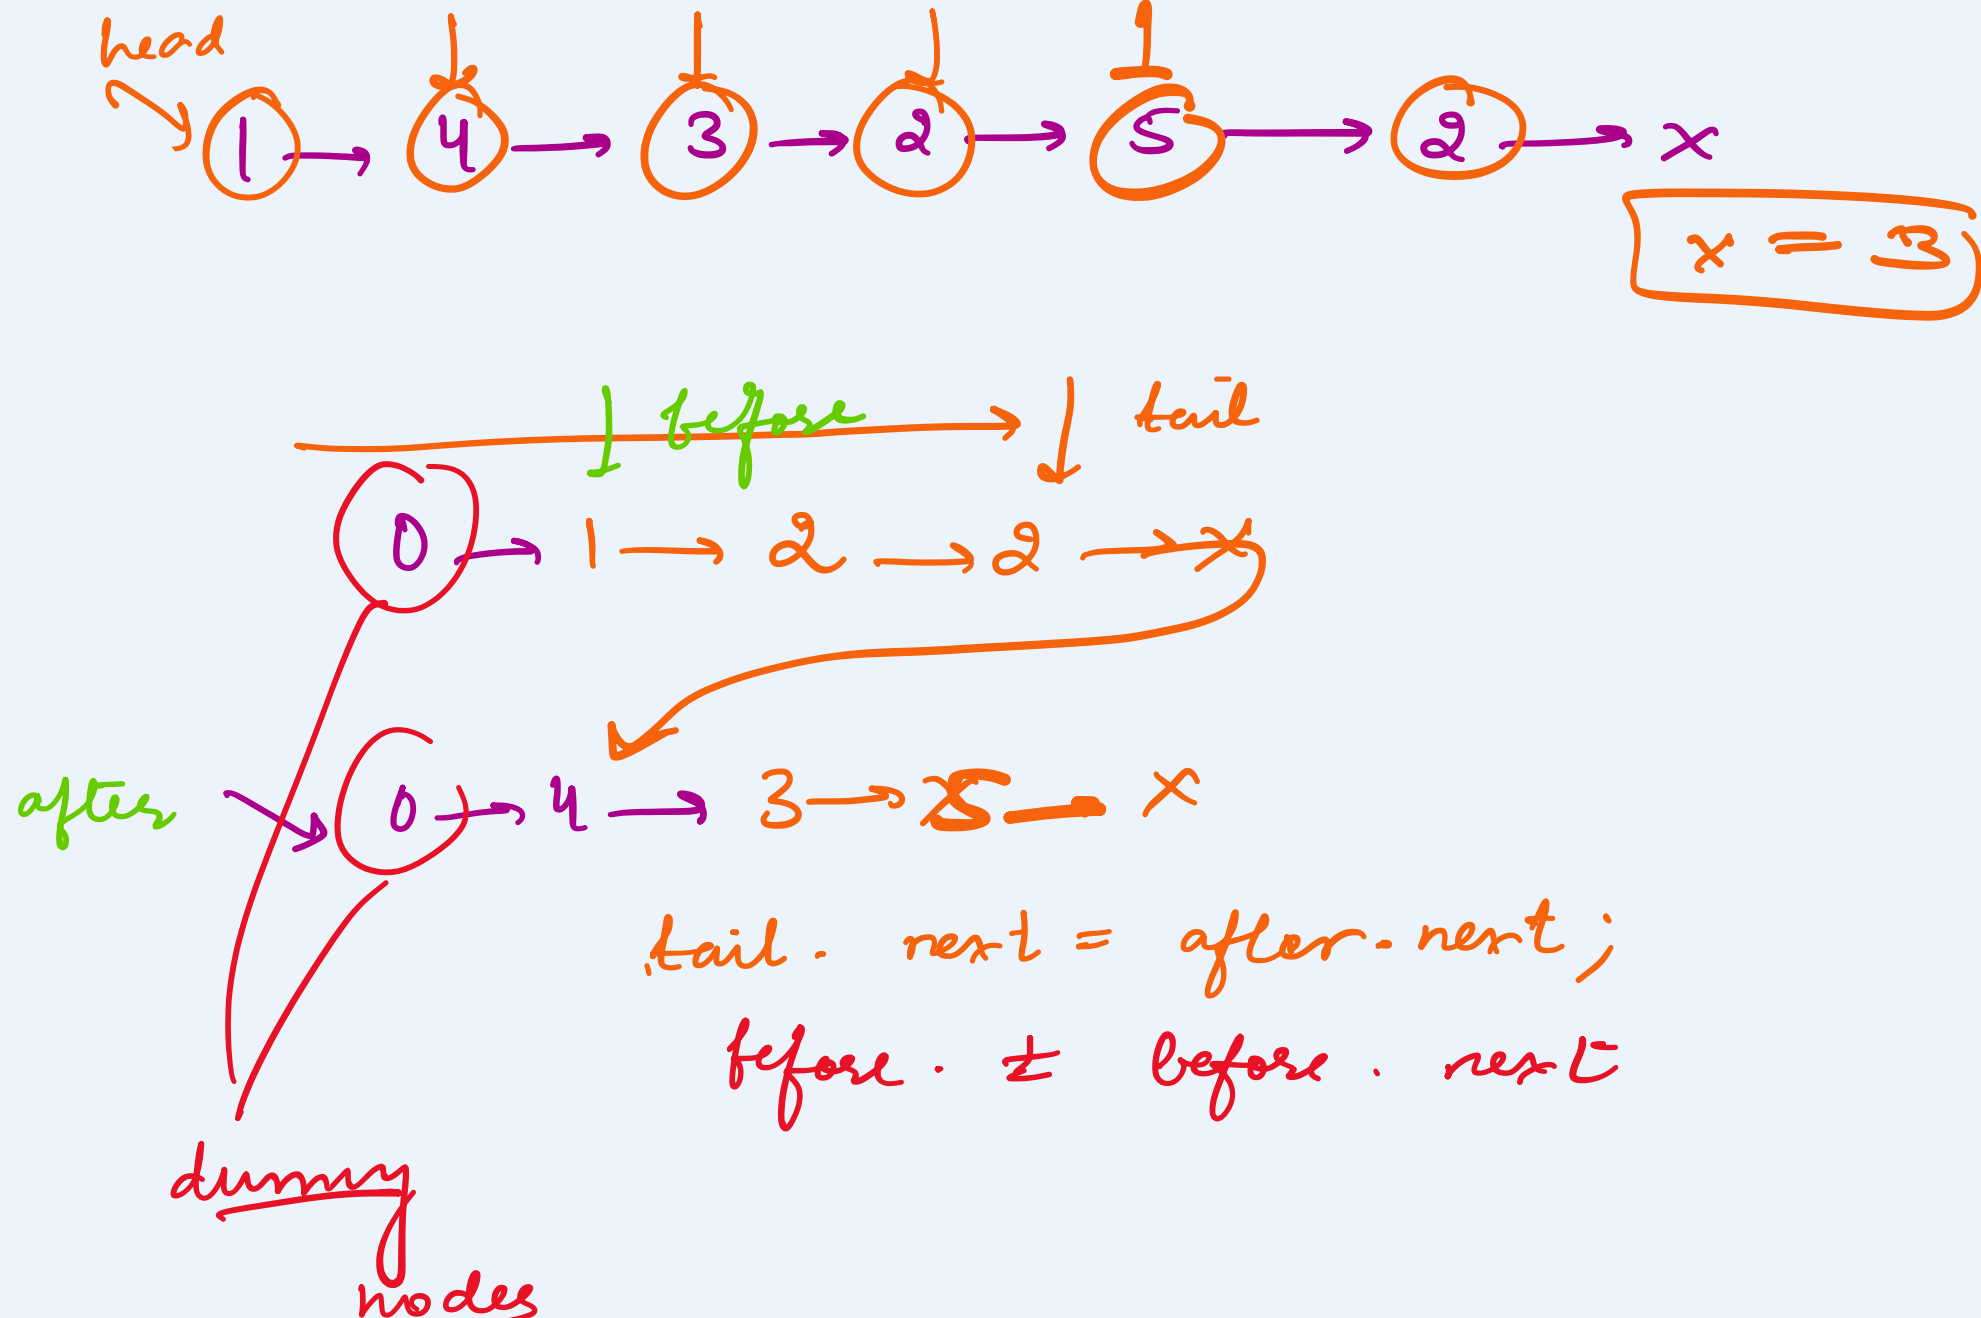 head
1 → 4 → 3 → 2 → 5 → 2 → x
x = 3
before tail
0 → 1 → 2 → 2 → x
after 0 → 4 → 3 → 5 - x
tail. next = after. next ;
before . = before . next
dummy
nodes